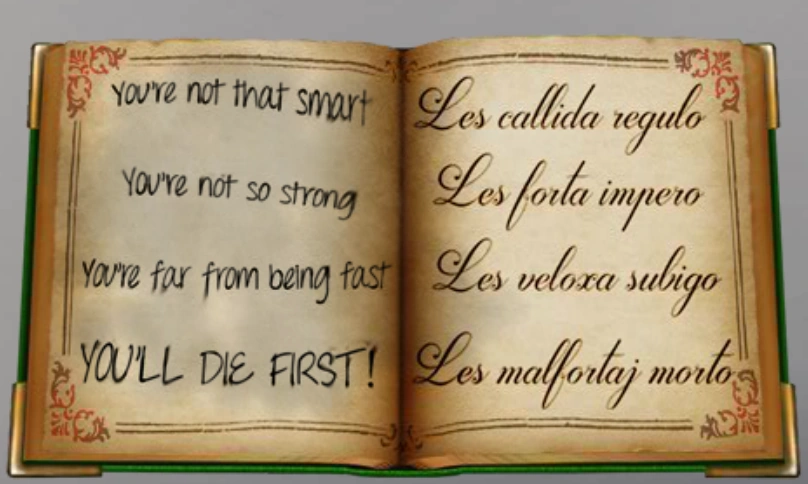 You're not that smart
You're not so strong
You're far from being fast
YOU'LL DIE FIRST!
Les callida regulo
Les forta impero
Les veloxa subigo
Les malfortaj morto